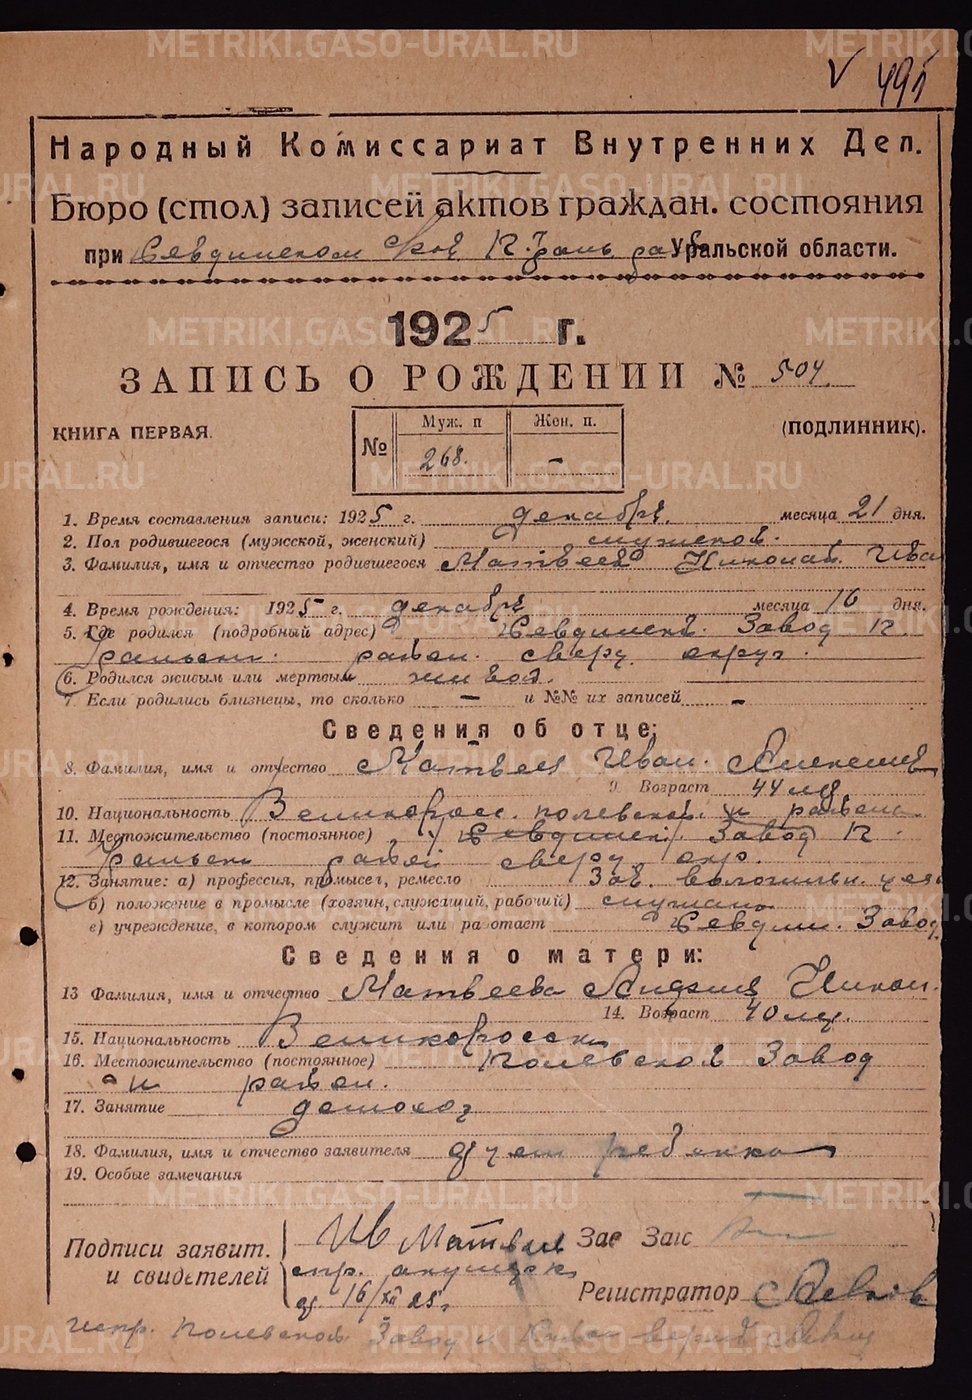 METRIKI.GASO-URAL.RU
V 495
Народный Комиссариат Внутренних Дел.
Бюро (стол) записей актов граждан. состояния
при Севдинском Уральской области.
1925 г.
ЗАПИСЬ О РОЖДЕНИИ № 504
КНИГА ПЕРВАЯ. (ПОДЛИННИК).
№ Муж. п Жен. п.
268. –
1. Время составления записи: 1925 г. декабря. месяца 21 дня.
2. Пол родившегося (мужской, женский) мужской.
3. Фамилия, имя и отчество родившегося Матвеев Николай Ива
4. Время рождения: 1925 г. декабря месяца 16 дня.
5. Где родился (подробный адрес) Севдинский Завод К.
район. сверд округ.
6. Родился живым или мертвым живой.
7. Если родились близнецы, то сколько – и №№ их записей –
Сведения об отце:
8. Фамилия, имя и отчество Матвеев Иван Алексеев
9. Возраст 44 лет
10. Национальность Великоросс полевской й района
11. Местожительство (постоянное) Севдинский Завод К.
район сверд окр.
12. Занятие: а) профессия, промысел, ремесло Зав.
б) положение в промысле (хозяин, служащий, рабочий) служащ
в) учреждение, в котором служит или работает Севдин. Завод
Сведения о матери:
13 Фамилия, имя и отчество Матвеева Лидия Никол.
14. Возраст 40 лет.
15. Национальность Великоросск
16. Местожительство (постоянное) Полевской Завод
й район.
17. Занятие домохоз
18. Фамилия, имя и отчество заявителя отец ребенка
19. Особые замечания
Подписи заявит. Ив Матвеев Зав Загс
и свидетелей спр. акушерк Регистратор
от 16/XII 25 г
испр. Полевской Завод и